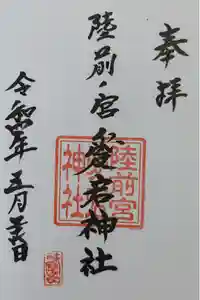 奉拝
陸前ノ宮愛宕神社
令和年五月日
陸前宮
神社